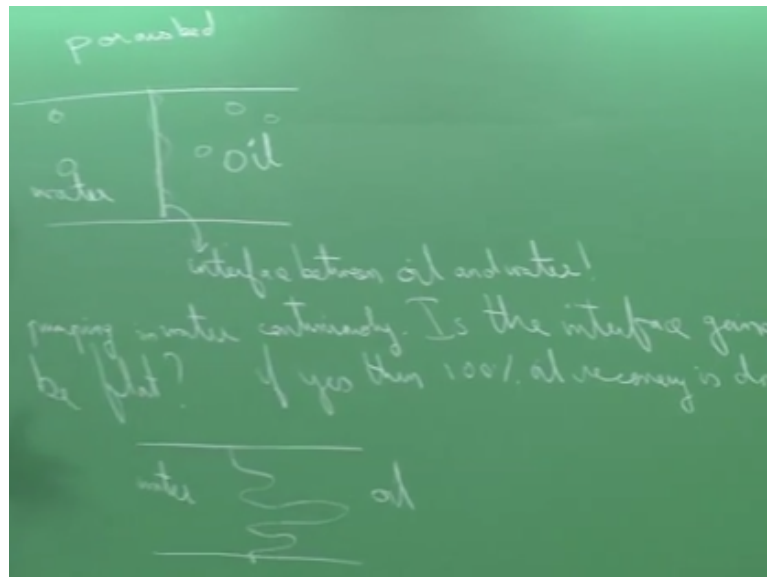 porous bed
oil
water
interface between oil and water!
pumping in water continuously. Is the interface going
be flat? if yes then 100% oil recovery is
water oil